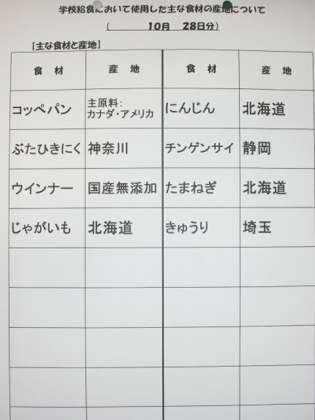 学校給食において使用した主な食材の産地について
（　10月　28日分）
【主な食材と産地】
食 材　産 地　食 材　産 地
コッペパン　主原料：カナダ・アメリカ　にんじん　北海道
ぶたひきにく　神奈川　チンゲンサイ　静岡
ウインナー　国産無添加　たまねぎ　北海道
じゃがいも　北海道　きゅうり　埼玉